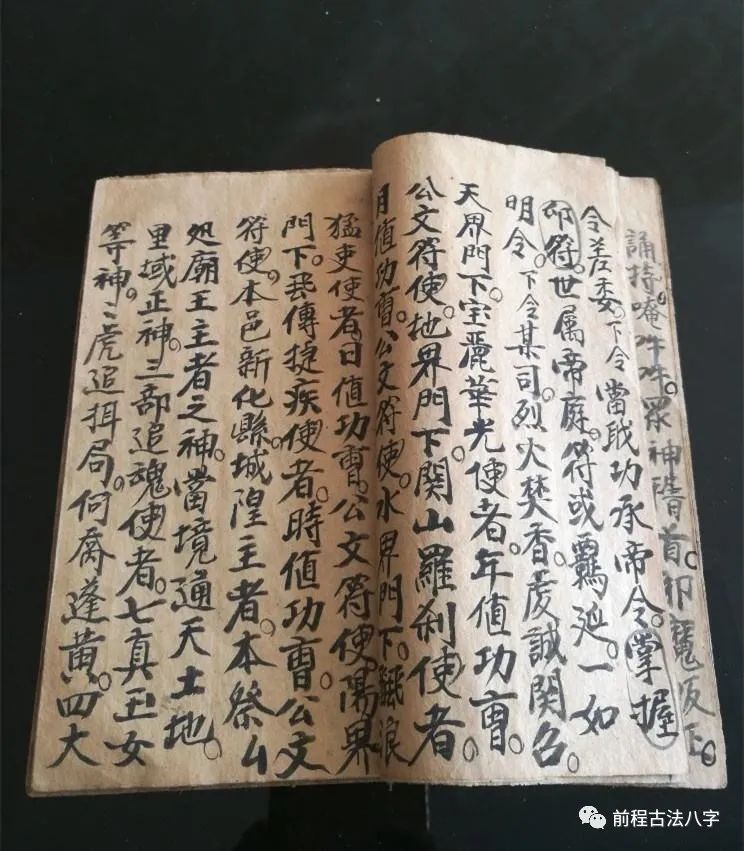 誦持唵吽吽。眾神隋首。邪魔皈正。
令差委。下令當戢功承帝令。掌握
邱符。世属帝庭。符或羈延。一如
明令。下令某司烈火焚香。虔誠関召。
天界門下。宝麗華光使者。年值功曹。
公文符使。地界門下。関山羅刹使者
月值功曹。公文符使。水界門下。浪
猛吏使者。日值功曹。公文符使。陽界
門下。飛傳捷疾使者。時值功曹。公文
符使。本邑新化縣城隍主者。本祭厶
処廟王主者之神。當境通天土地。
里域正神。三部追魂使者。七真玉女
等神。二虎追局。何喬蓬黄。四大
前程古法八字